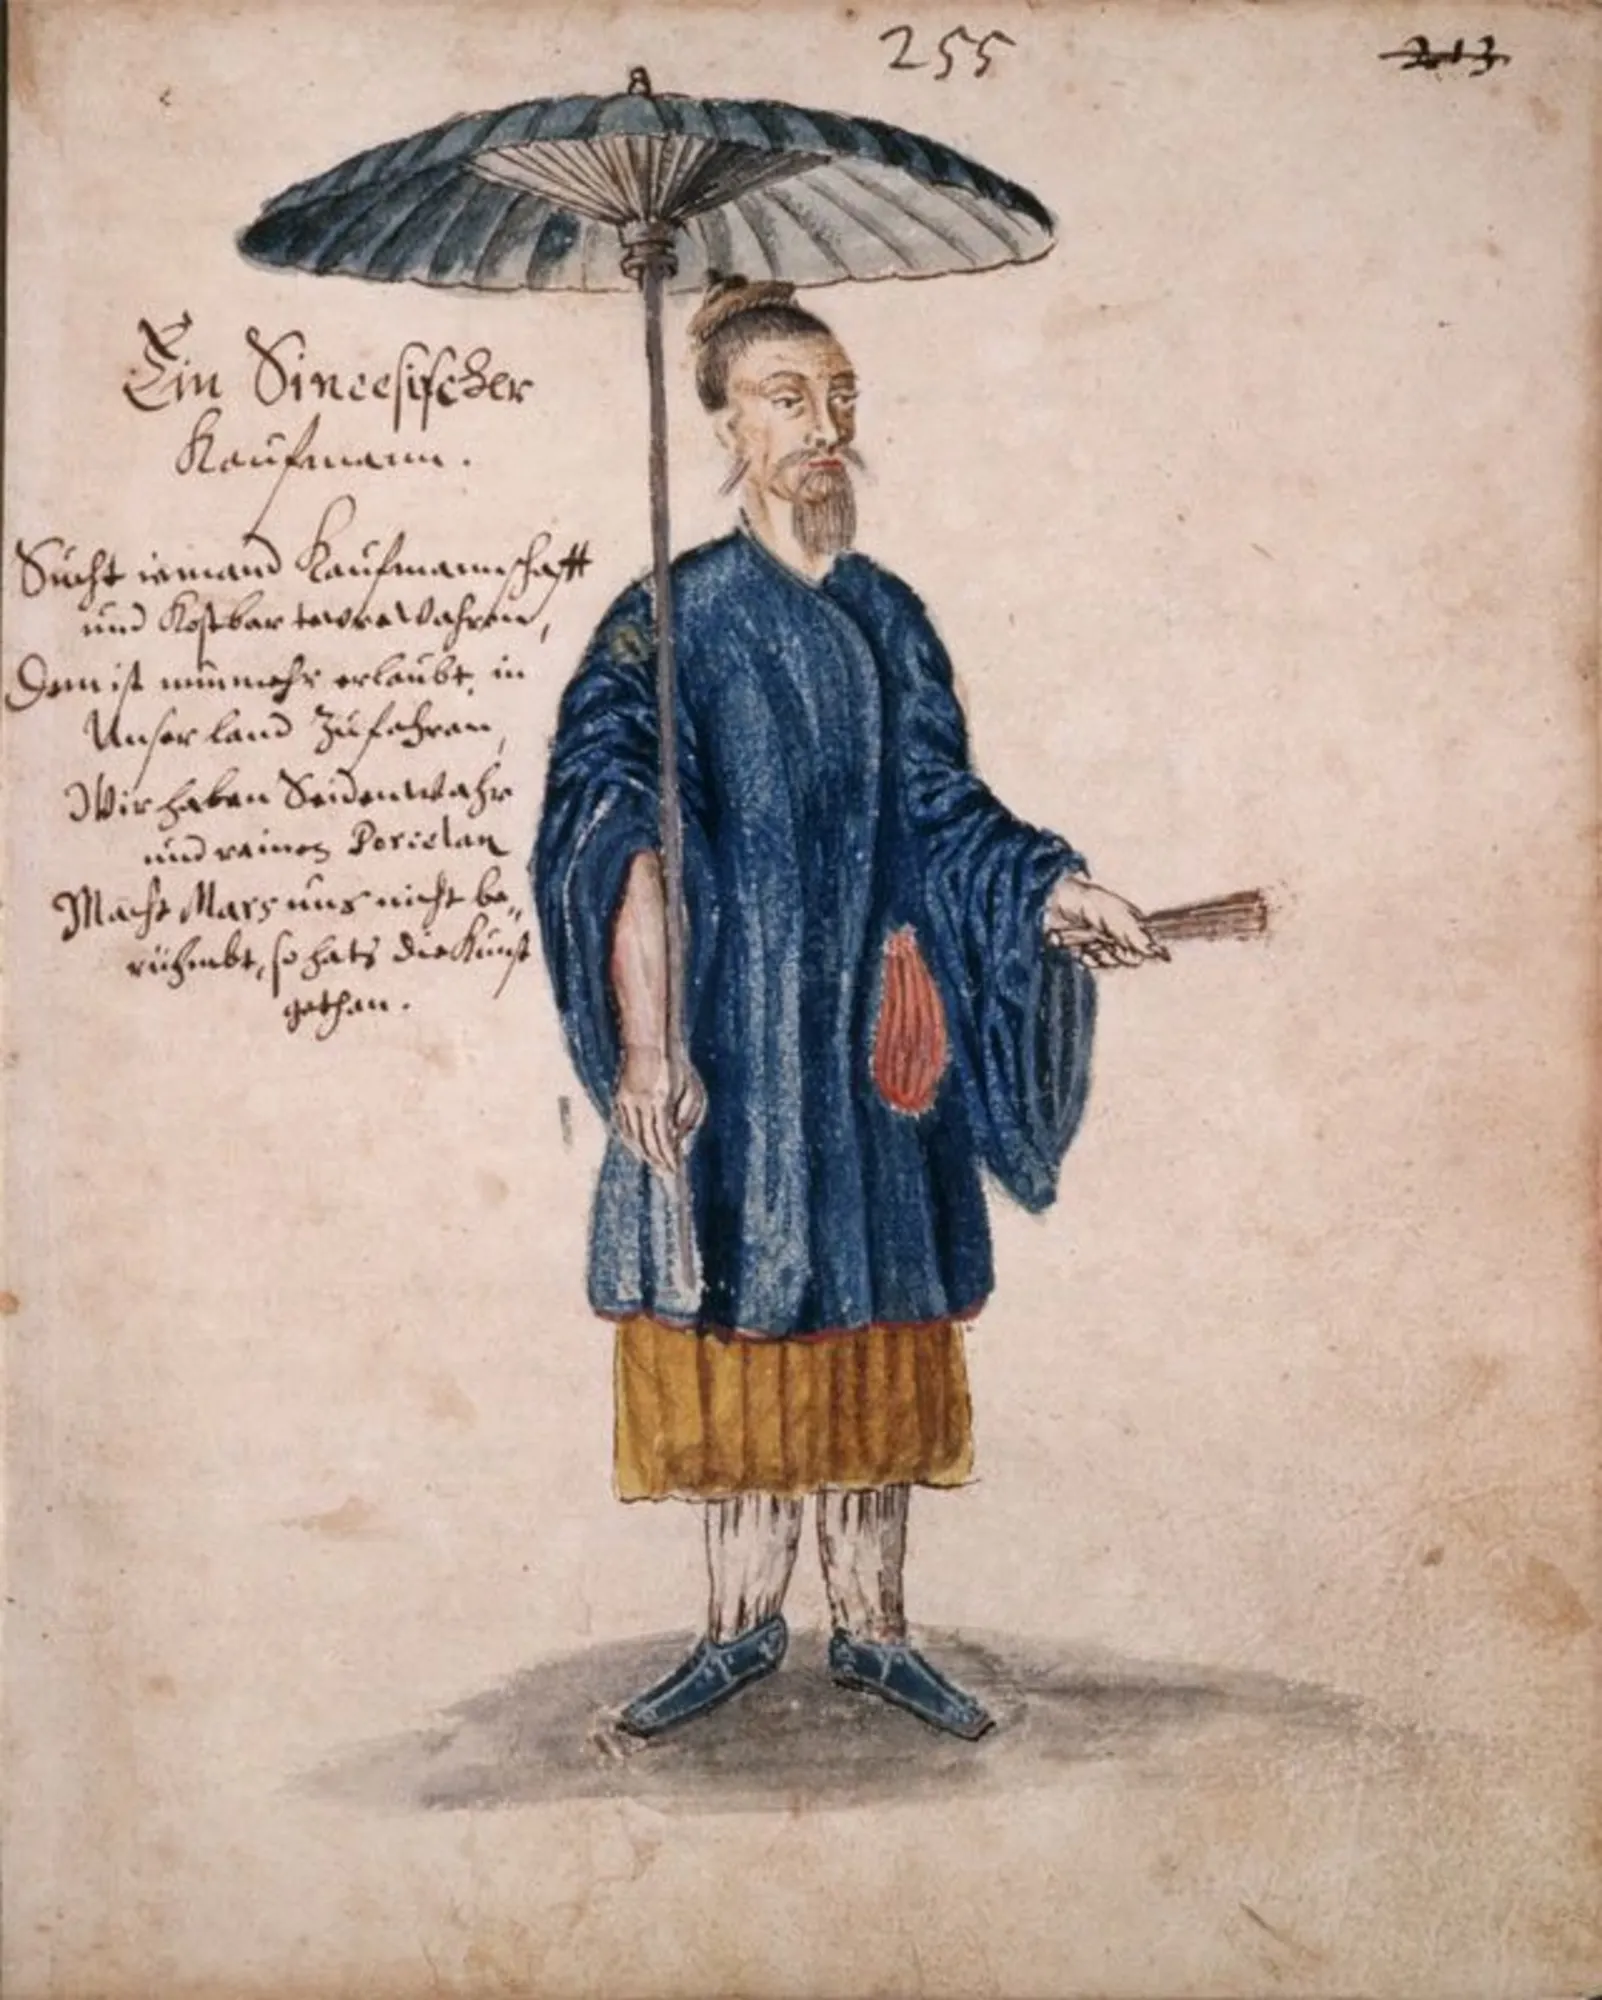 255
213
Ein Sineesischer
Kaufmann.
Sücht iemand Kaufmannschafft
und Kostbar tevre Wahren,
Dem ist nunmehr erlaubt, in
Unser land Zu fahren,
Wir haben Seidenwahr
und reinen Porcelan
Macht Mars uns nicht be„
rühmbt, so hats die Kunst
gethan.